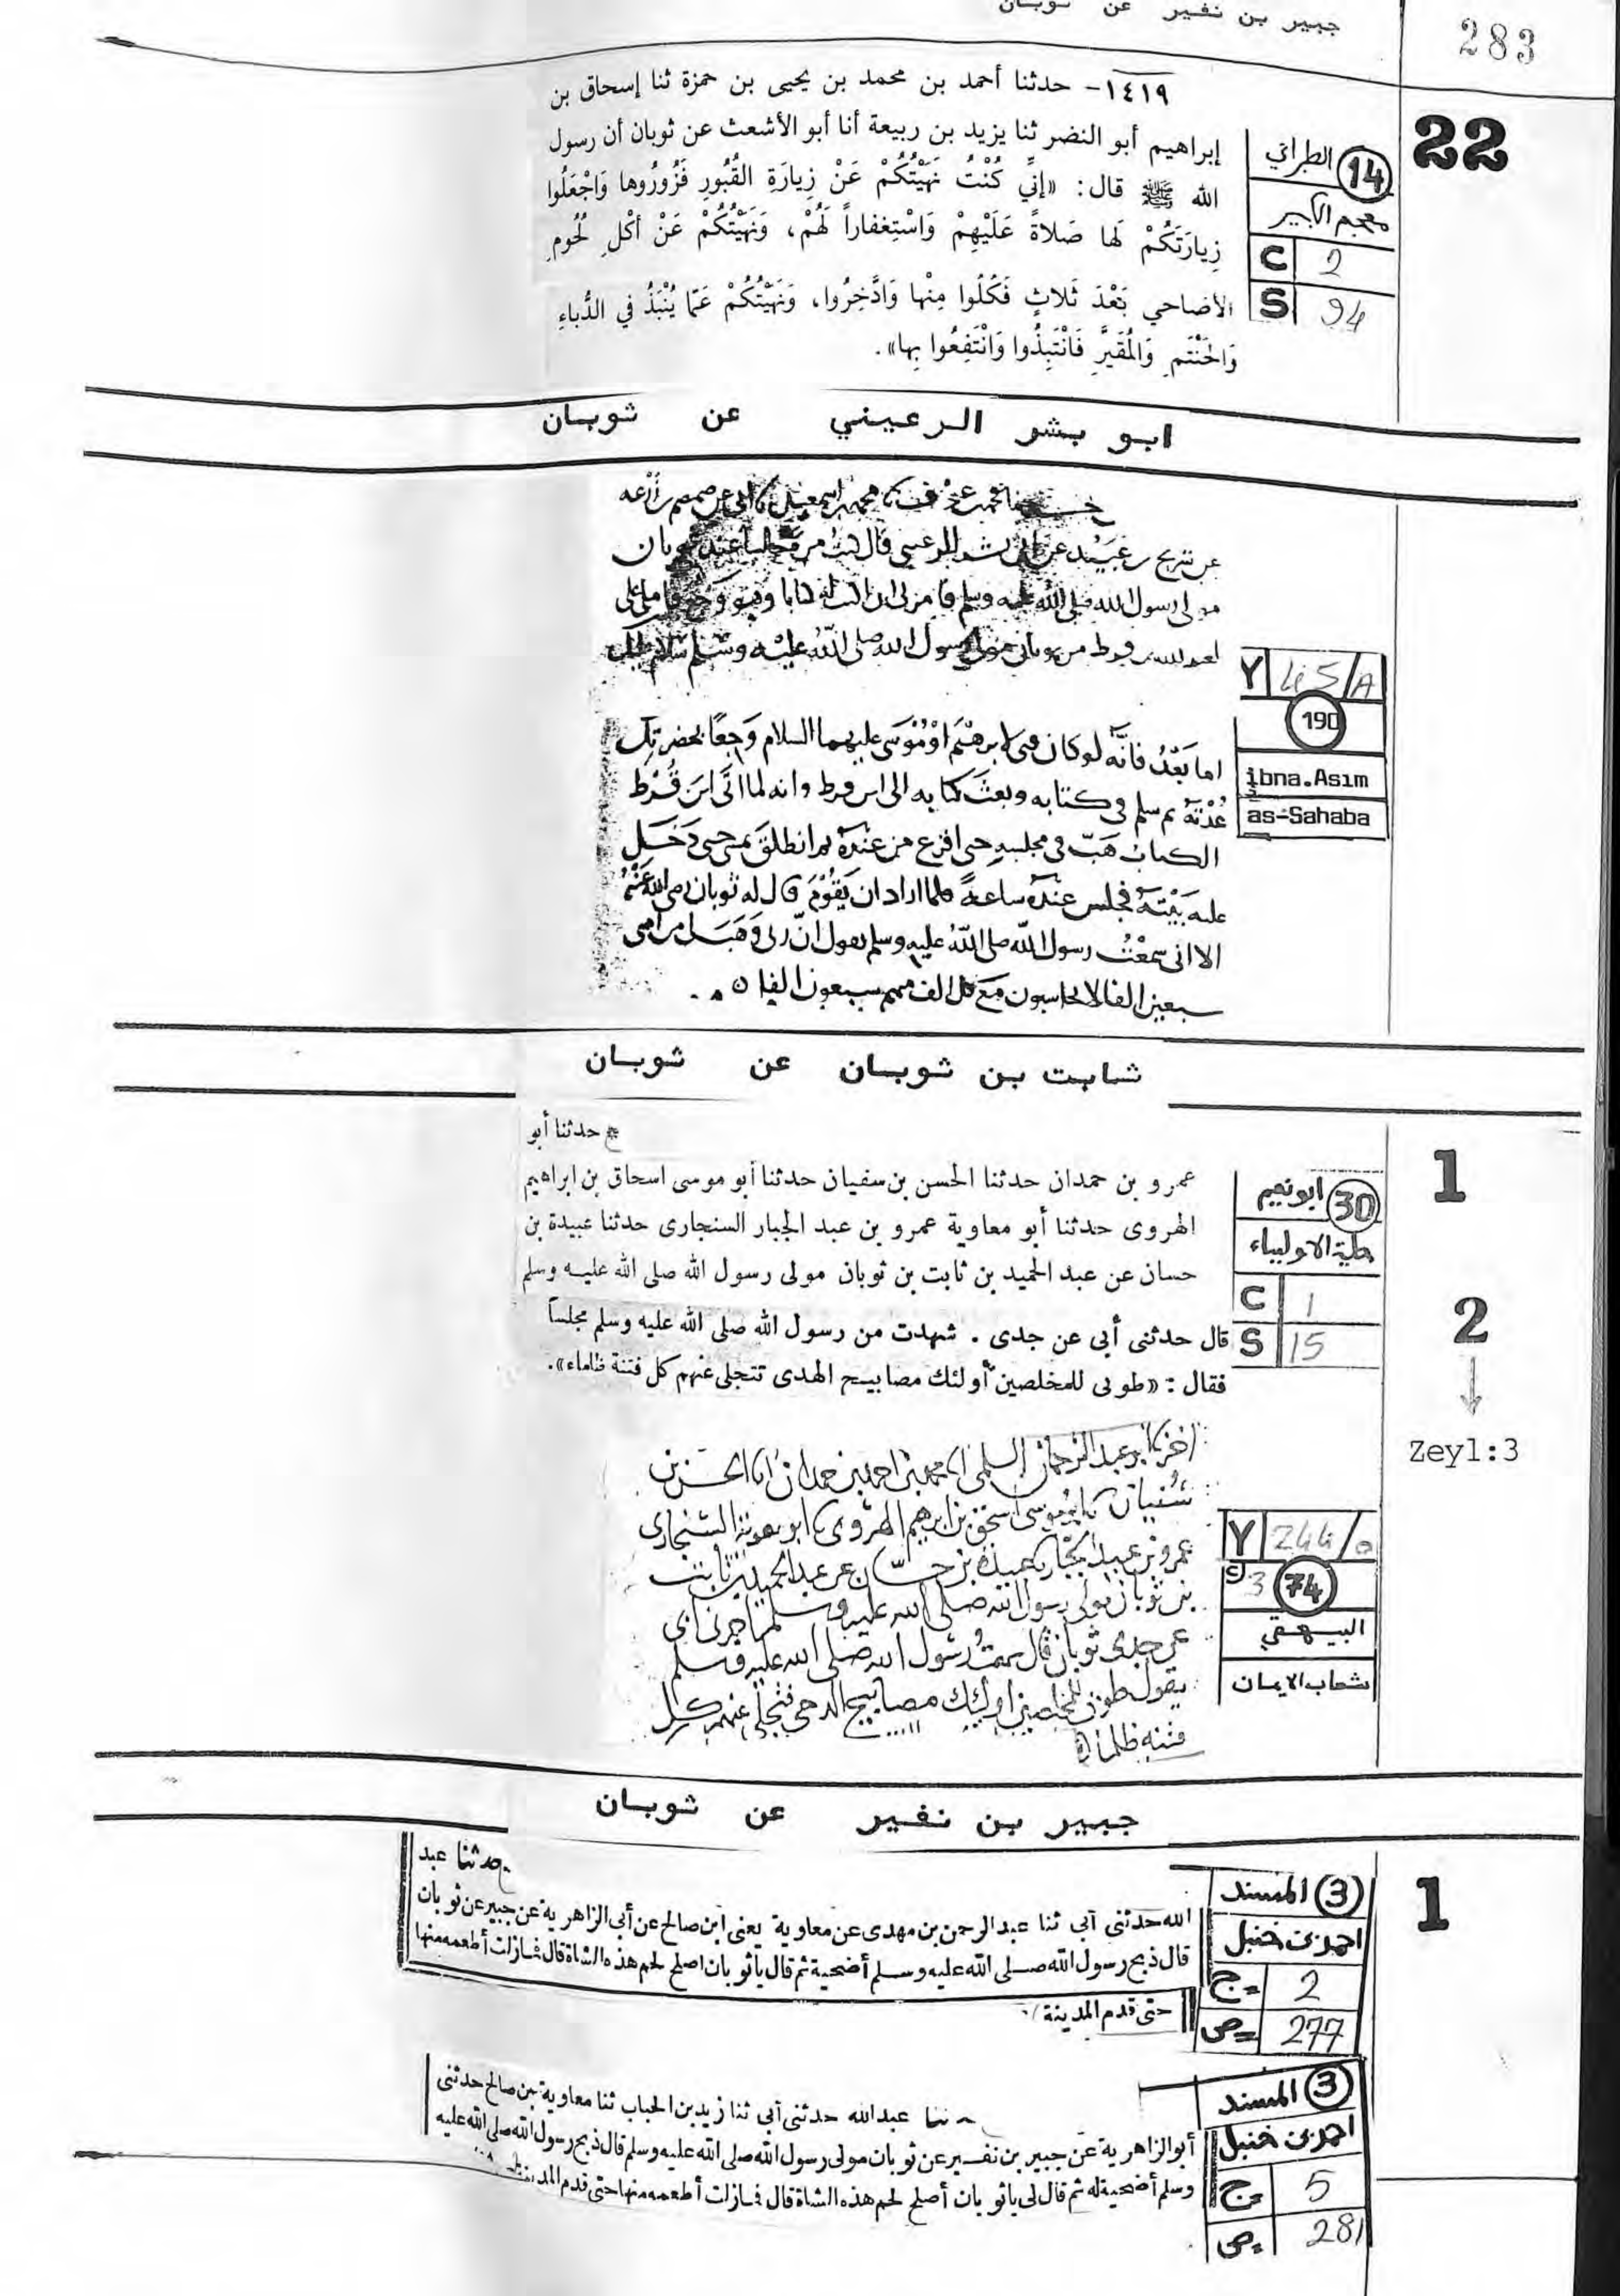 جبير بن نفير عن ثوبان
283
22
١٤١٩- حدثنا أحمد بن محمد بن يحيى بن حمزة ثنا إسحاق بن
إبراهيم أبو النضر ثنا يزيد بن ربيعة أنا أبو الأشعث عن ثوبان أن رسول
الله ﷺ قال: «إِنِّي كُنْتُ نَهَيْتُكُمْ عَنْ زِيارَةِ القُبُورِ فَزُورُوها وَاجْعَلُوا
زِيارَتَكُمْ لَها صَلاةً عَلَيْهِمْ وَاسْتِغفاراً لَهُمْ، وَنَهَيْتُكُمْ عَنْ أكْلِ لُحُومِ
الأضاحي بَعْدَ ثَلاثٍ فَكُلُوا مِنْها وَادَّخِرُوا، وَنَهَيْتُكُمْ عَمّا يُنْبَذُ في الدُّباءِ
وَالحَنْتَمِ وَالمُقَيَّرِ فَانْتَبِذُوا وَانْتَفِعُوا بِها».
14 الطبراني
معجم الكبير
C 2
S 94
ابو بشر الرعيني عن ثوبان
مولى رسول الله صلى الله عليه وسلم
رسول الله صلى الله عليه وسلم
اما بَعْدُ فانَّه لو كان مولى لابرهيم او مُوْسَى عليهما السلام وَجعًا بحضرتك
عُدْتَهُ ثم سلم فى كتابه وبعث كتابه الى ابن قرط وانه لما اتَى ابن قُرط
الكتاب هَبّ فى مجلسه حتى افزع من عنده ثم انطلق يمشى حتى دَخَل
عليه بَيْتَهُ فجلس عنده ساعةً فلما اراد ان يَقُوْمَ قال له ثوبان رضى الله عنهُ
الا انى سمعْتُ رسول الله صلى اللهُ عليه وسلم يقول انّ ربى وَهَبَ لى من امتى
سبعين الفا لا يحاسبون مَعَ كل الف منهم سبعون الفا
Y 45/A
190
ibna.Asım
as-Sahaba
ثابت بن ثوبان عن ثوبان
1
* حدثنا أبو
عمرو بن حمدان حدثنا الحسن بن سفيان حدثنا أبو موسى اسحاق بن ابراهيم
الهروى حدثنا أبو معاوية عمرو بن عبد الجبار السنجارى حدثنا عبيدة بن
حسان عن عبد الحميد بن ثابت بن ثوبان مولى رسول الله صلى الله عليه وسلم
قال حدثنى أبى عن جدى . شهدت من رسول الله صلى الله عليه وسلم مجلساً
فقال : «طوبى للمخلصين أولئك مصابيح الهدى تتجلى عنهم كل فتنة ظلماء».
30 ابو نعيم
حلية الاولياء
C 1
S 15
2
Zeyl:3
اخبرنا ابو عبد الرحمن السلمى انا محمد بن احمد بن حمدان انا الحسن بن
سُفيان نا ابو موسى اسحق بن ابرهيم الهروى نا ابو معوية السنجارى
عمرو بن عبد الجبار نا عبيدة بن حسان عن عبد الحميد بن ثابت
بن ثوبان مولى رسول الله صلى الله عليه وسلم اخبرنى ابى
عن جدى ثوبان قال سمعت رسول الله صلى الله عليه وسلم
يقول طوبى للمخلصين اوليك مصابيح الدجى تتجلى عنهم كل
فتنه ظلما
Y 244/a
3 74
البيهقي
شعاب الايمان
جبير بن نفير عن ثوبان
1
حدثنا عبد
الله حدثنى أبى ثنا عبد الرحمن بن مهدى عن معاوية يعنى ابن صالح عن أبى الزاهرية عن جبير عن ثوبان
قال ذبح رسول الله صلى الله عليه وسلم أضحية ثم قال يا ثوبان اصلح لحم هذه الشاة قال فمازلت أطعمه منها
حتى قدم المدينة
3 المسند
احمد بن حنبل
ج 2
ص 277
ثنا عبد الله حدثنى أبى ثنا زيد بن الحباب ثنا معاوية بن صالح حدثنى
أبو الزاهرية عن جبير بن نفير عن ثوبان مولى رسول الله صلى الله عليه وسلم قال ذبح رسول الله صلى الله عليه
وسلم أضحية له ثم قال لى يا ثوبان أصلح لحم هذه الشاة قال فمازلت أطعمه منها حتى قدم المدينة
3 المسند
احمد بن حنبل
ج 5
ص 281